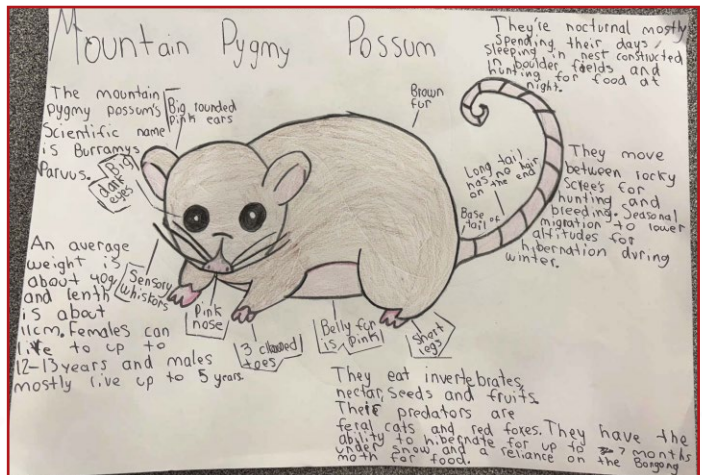 Mountain Pygmy Possum
They're nocturnal mostly
spending their days
sleeping in nest constucted
in boulder fields and
hunting for food at
night.
The mountain
pygmy possum's
Scientific name
is Burramys
Parvus.
Big rounded
pink ears
Big
dark
eyes
Brown
fur
Long tail
has no hair
on the end
Base of
tail
They move
between rocky
Scree's for
hunting and
breeding. Seasonal
migration to lower
altitudes for
hibernation during
winter.
An average
weight is
about 40g
and lenth
is about
11cm. Females can
live to up to
12-13 years and males
mostly live up to 5 years
Sensory
whiskors
Pink
nose
3 clawed
toes
Belly fur
is pink!
Short
legs
They eat invertebrates,
nectar, seeds and fruits.
Their predators are
feral cats and red foxes. They have the
ability to hiberndte for up to 7 months
under snow and a reliance on the Bongong
moth for food.